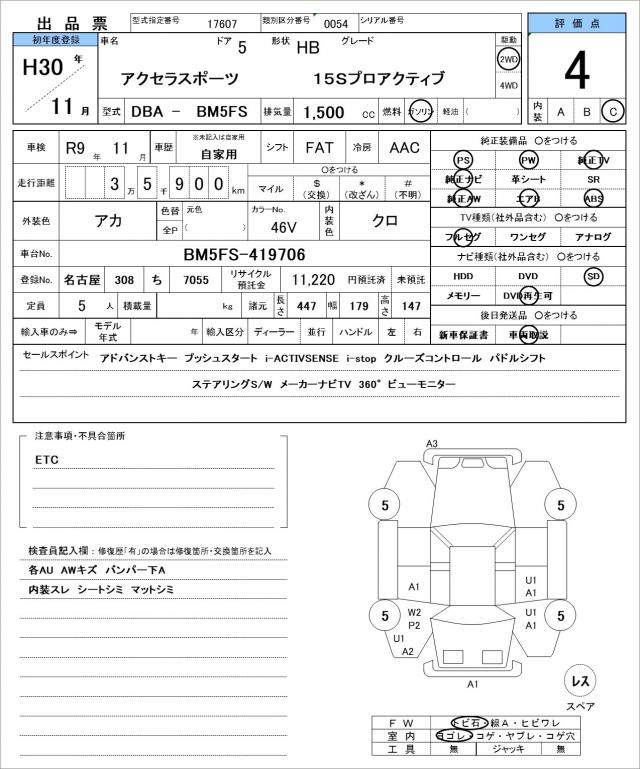 出品票 型式指定番号 17607 類別区分番号 0054 シリアル番号
初年度登録 車名 ドア 5 形状 HB グレード 駆動 評価点
H30 年 アクセラスポーツ 15Sプロアクティブ 2WD 4WD 4
11 月 型式 DBA － BM5FS 排気量 1,500 cc 燃料 ガソリン 軽油 ( ) 内装 A B C
車検 R9 年 11 月 車歴 ※未記入は自家用 自家用 シフト FAT 冷房 AAC
走行距離 3 万 5 千 9 0 0 km ○をつける マイル $ (交換) * (改ざん) # (不明)
外装色 アカ 色替 全P 元色 ( ) カラーNo. 46V 内装色 クロ
車台No. BM5FS-419706
登録No. 名古屋 308 ち 7055 リサイクル預託金 11,220 円預託済 未預託
定員 5 人 積載量 kg 諸元 長さ 447 幅 179 高さ 147
輸入車のみ⇒ モデル年式 年 輸入区分 ディーラー 並行 ハンドル 左 右
純正装備品 ○をつける
PS PW 純正TV
純正ナビ 革シート SR
純正AW エアB ABS
TV種類(社外品含む) ○をつける
フルセグ ワンセグ アナログ
ナビ種類(社外品含む) ○をつける
HDD DVD SD
メモリー DVD再生可
後日発送品 ○をつける
新車保証書 車両取説
セールスポイント アドバンストキー プッシュスタート i-ACTIVSENSE i-stop クルーズコントロール パドルシフト
ステアリングS/W メーカーナビTV 360°ビューモニター
注意事項・不具合箇所
ETC
検査員記入欄：修復歴「有」の場合は修復箇所・交換箇所を記入
各AU AWキズ バンパー下A
内装スレ シートシミ マットシミ
A3
5 5
A1 U1 A1
5 W2 P2 U1 A1 5
U1 A2
A1
レス
スペア
FW トビ石・線A・ヒビワレ
室内 ヨゴレ・コゲ・ヤブレ・コゲ穴
工具 無 ジャッキ 無